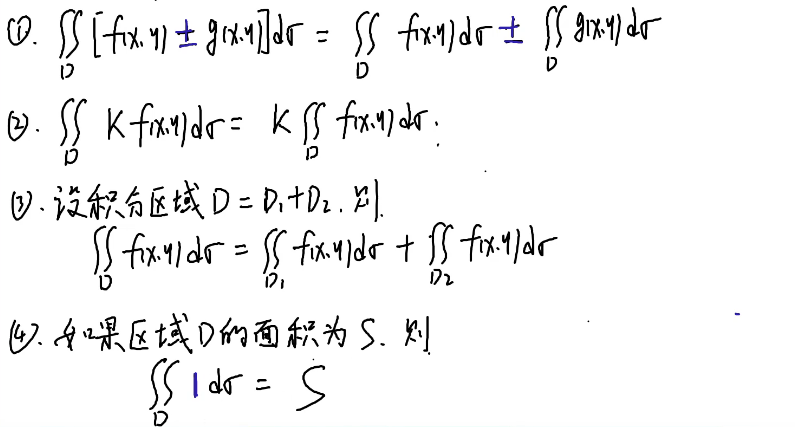 (1). ∬_D [f(x,y) ± g(x,y)]dσ = ∬_D f(x,y)dσ ± ∬_D g(x,y)dσ
(2). ∬_D K f(x,y)dσ = K∬_D f(x,y)dσ;
(3). 设积分区域 D = D₁+D₂. 则
∬_D f(x,y)dσ = ∬_D₁ f(x,y)dσ + ∬_D₂ f(x,y)dσ
(4). 如果区域D的面积为 S. 则
∬_D 1 dσ = S